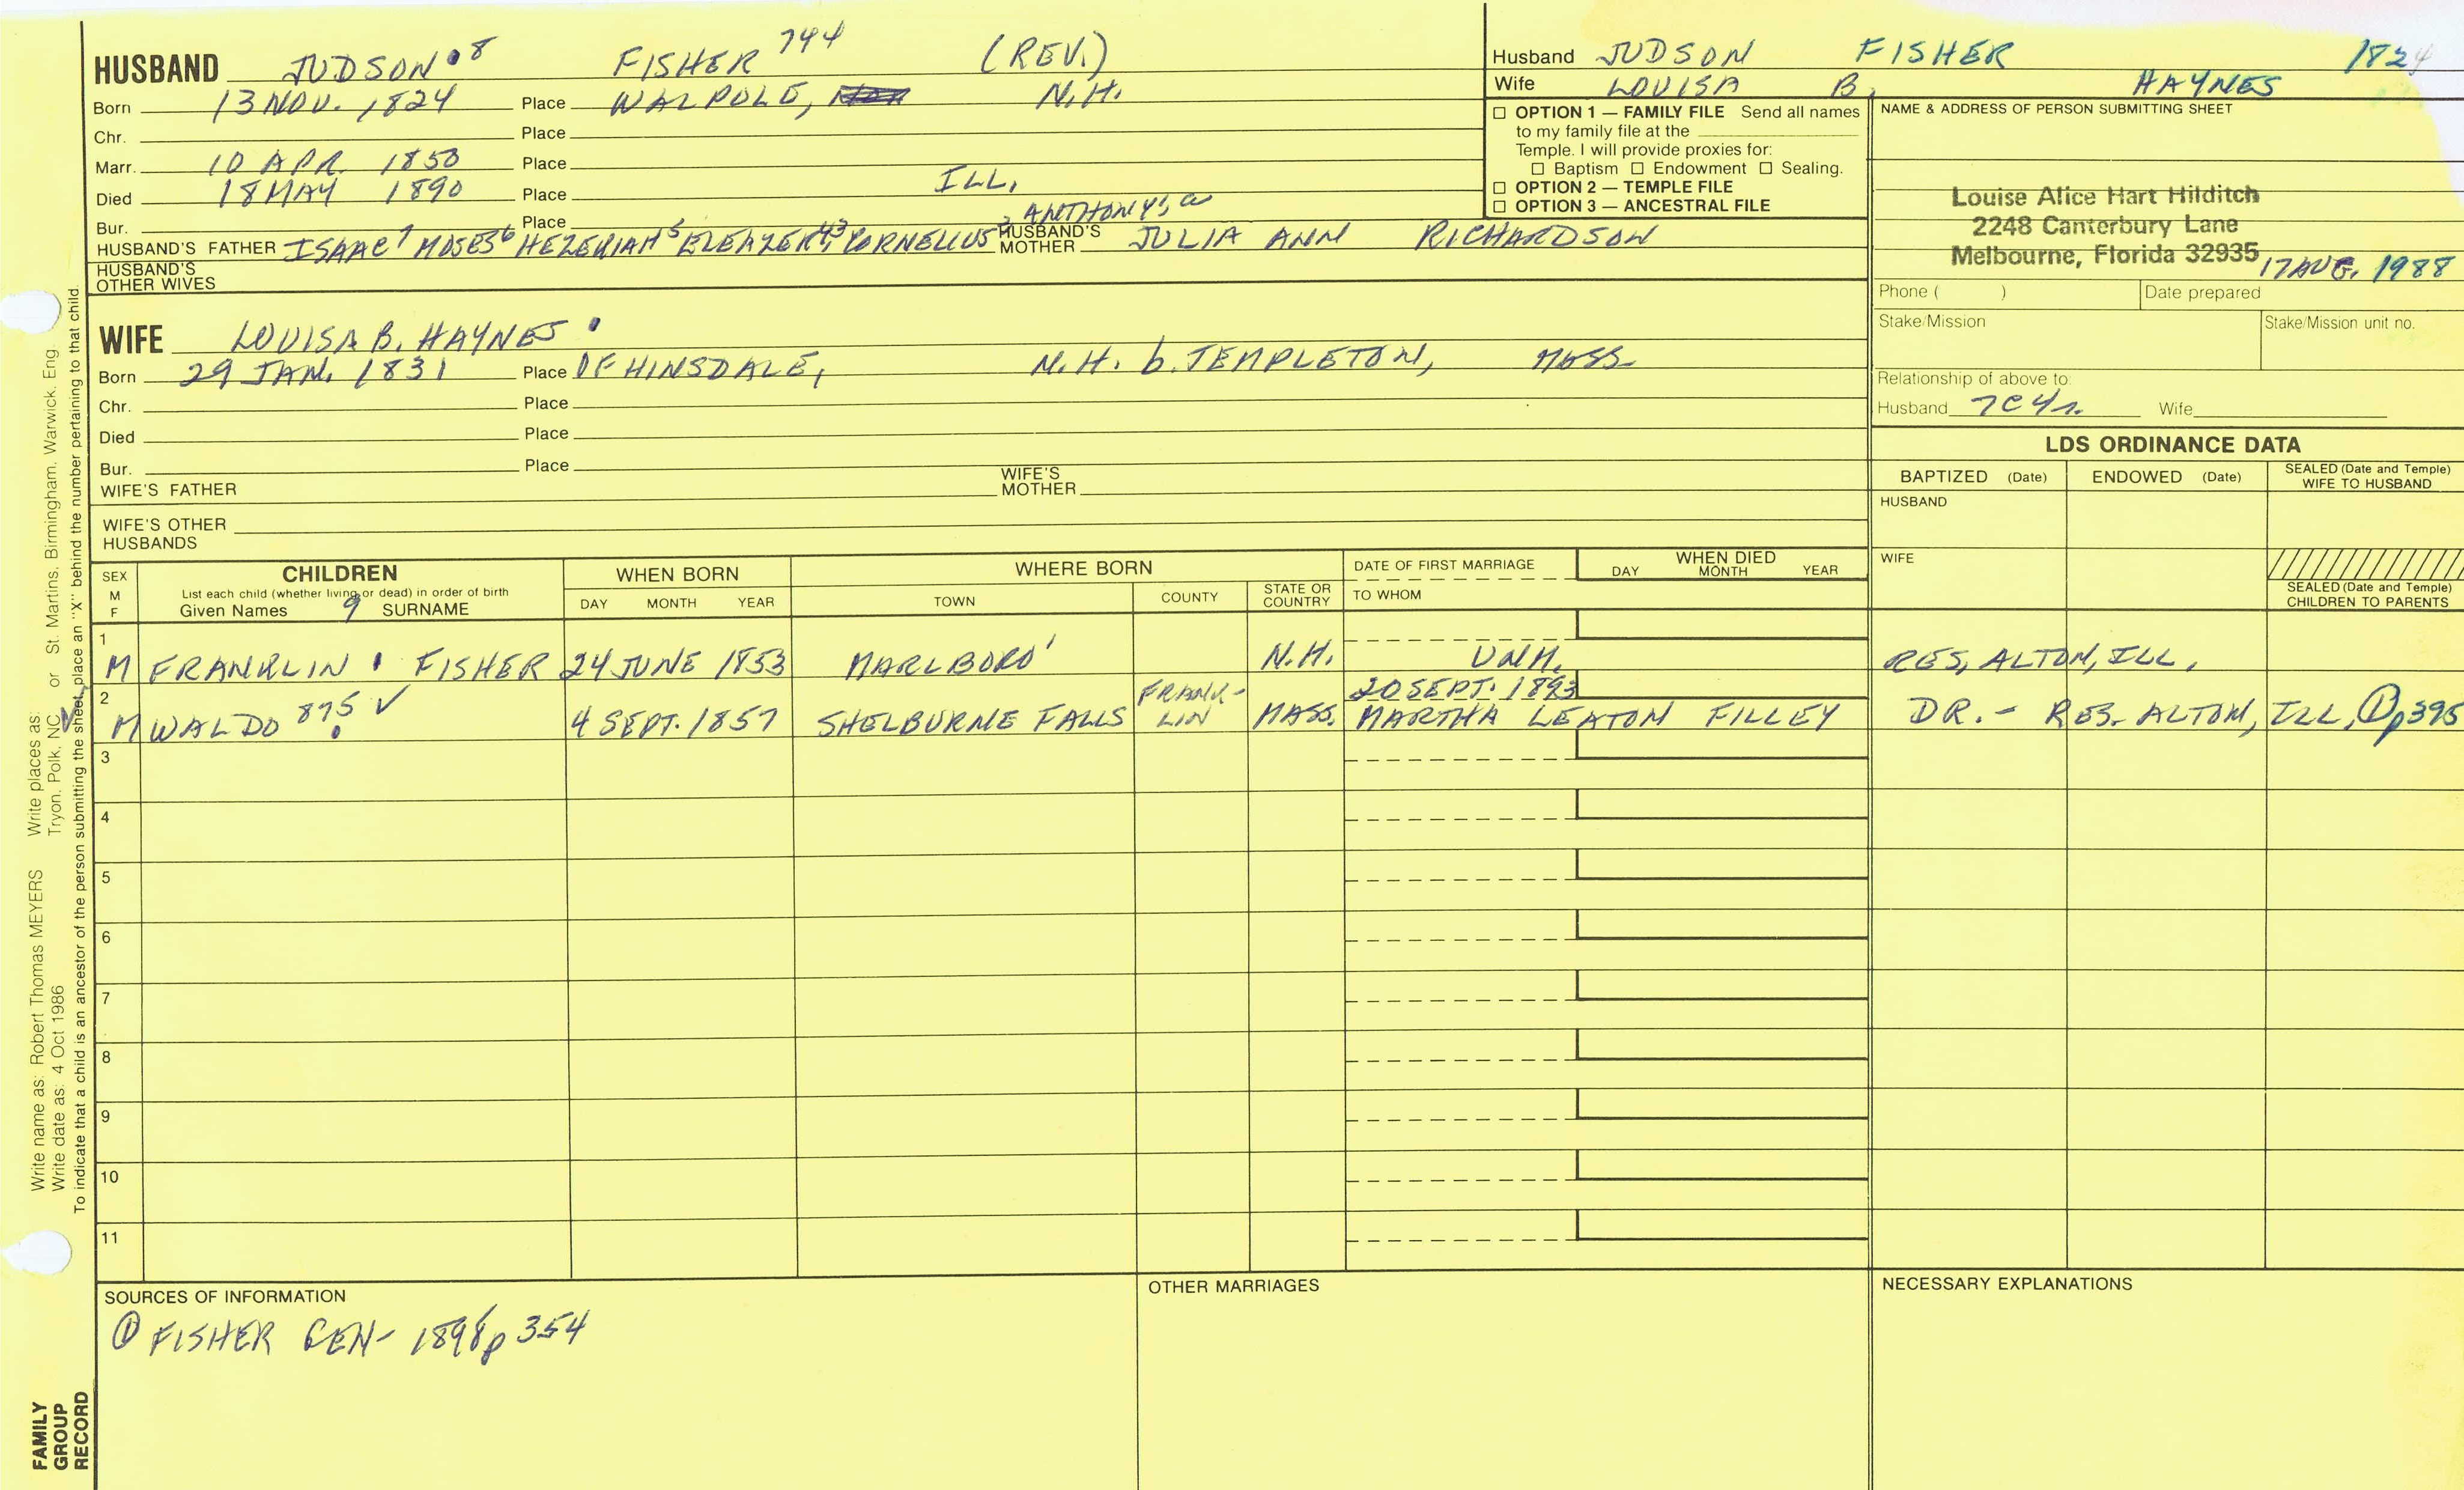 HUSBAND JUDSON 8 FISHER 744 (REV.)
Born 13 NOV. 1824 Place WALPOLE, N.H.
Chr. Place
Marr. 10 APR. 1850 Place
Died 18 MAY 1890 Place ILL.
Bur. Place
HUSBAND'S FATHER ISAAC 7 MOSES 6 HEZEKIAH 5 ELEAZER 4, 3 CORNELIUS 2 ANTHONY 1, HUSBAND'S MOTHER JULIA ANN RICHARDSON
HUSBAND'S OTHER WIVES
Husband JUDSON FISHER 1824
Wife LOUISA B. HAYNES
☐ OPTION 1 — FAMILY FILE Send all names
to my family file at the
Temple. I will provide proxies for:
☐ Baptism ☐ Endowment ☐ Sealing.
☐ OPTION 2 — TEMPLE FILE
☐ OPTION 3 — ANCESTRAL FILE
NAME & ADDRESS OF PERSON SUBMITTING SHEET
Louise Alice Hart Hilditch
2248 Canterbury Lane
Melbourne, Florida 32935
17 AUG. 1988
Phone ( ) Date prepared
Stake/Mission Stake/Mission unit no.
Relationship of above to:
Husband 7C4r. Wife
WIFE LOUISA B. HAYNES
Born 29 JAN. 1831 Place OF HINSDALE, N.H. b. TEMPLETON, MASS
Chr. Place
Died Place
Bur. Place
WIFE'S FATHER WIFE'S MOTHER
WIFE'S OTHER HUSBANDS
LDS ORDINANCE DATA
BAPTIZED (Date) ENDOWED (Date) SEALED (Date and Temple) WIFE TO HUSBAND
HUSBAND
WIFE
SEALED (Date and Temple) CHILDREN TO PARENTS
SEX M F
CHILDREN
List each child (whether living or dead) in order of birth
Given Names 9 SURNAME
WHEN BORN
DAY MONTH YEAR
WHERE BORN
TOWN COUNTY STATE OR COUNTRY
DATE OF FIRST MARRIAGE
TO WHOM
WHEN DIED
DAY MONTH YEAR
1
M FRANKLIN FISHER 24 JUNE 1853 MARLBORO' N.H. UNM. RES. ALTON, ILL.
2
M WALDO 875 ✓ 4 SEPT. 1857 SHELBURNE FALLS FRANK-LIN MASS. 20 SEPT. 1893 MARTHA LEATON FILLEY DR. - RES. ALTON, ILL, ① p 395
3
4
5
6
7
8
9
10
11
SOURCES OF INFORMATION
① FISHER GEN- 1898 p 354
OTHER MARRIAGES
NECESSARY EXPLANATIONS
Write name as: Robert Thomas MEYERS Write places as:
Write date as: 4 Oct 1986 Tryon, Polk, NC or St. Martins, Birmingham, Warwick, Eng.
To indicate that a child is an ancestor of the person submitting the sheet, place an "X" behind the number pertaining to that child.
FAMILY
GROUP
RECORD